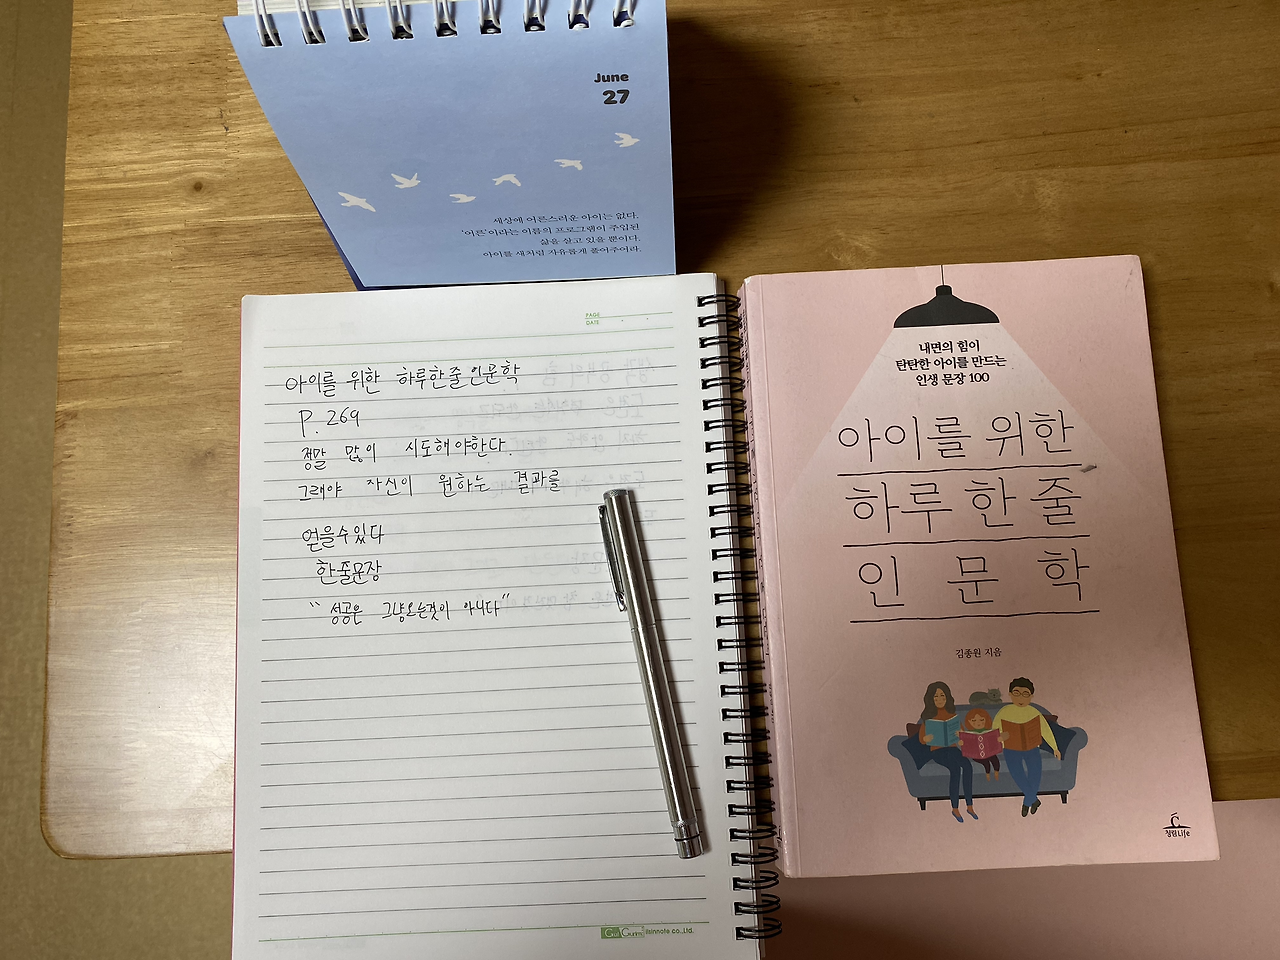 June
27
세상에 어른스러운 아이는 없다.
'어른'이라는 이름의 프로그램이 주입된
삶을 살고 있을 뿐이다.
아이를 새처럼 자유롭게 풀어주어라.
PAGE
DATE
아이를 위한 하루한줄인문학
P. 269
정말 많이 시도해야한다.
그래야 자신이 원하는 결과를
얻을수있다
한줄문장
"성공은 그냥오는것이 아니다"
내면의 힘이
탄탄한 아이를 만드는
인생 문장 100
아이를 위한
하루 한 줄
인 문 학
김종원 지음
청림Life